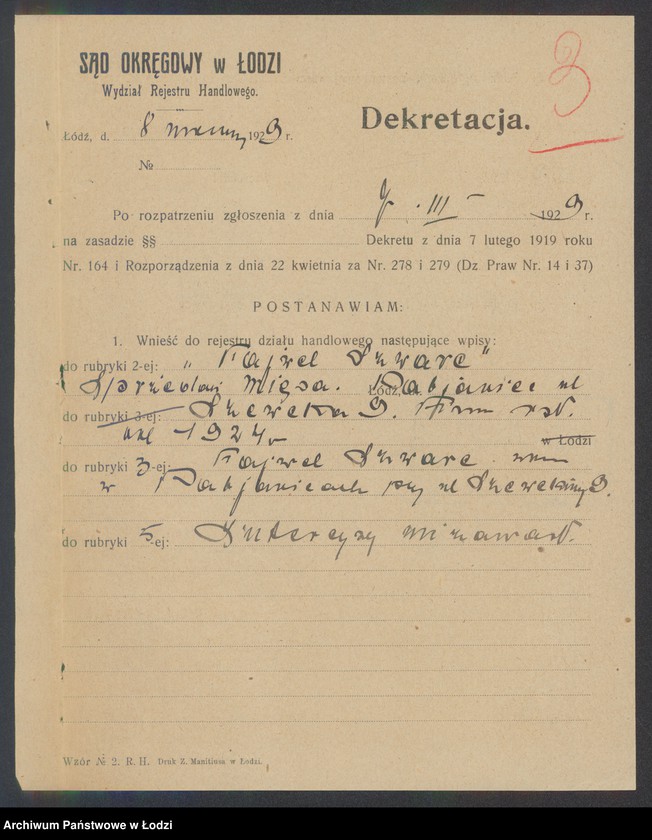 SĄD OKRĘGOWY w ŁODZI
Wydział Rejestru Handlowego.
3
Dekretacja.
Łódź, d. 8 marca 1929 r.
№
Po rozpatrzeniu zgłoszenia z dnia III 1929 r.
na zasadzie §§ Dekretu z dnia 7 lutego 1919 roku
Nr. 164 i Rozporządzenia z dnia 22 kwietnia za Nr. 278 i 279 (Dz Praw Nr. 14 i 37)
POSTANAWIAM:
1. Wnieść do rejestru działu handlowego następujące wpisy:
do rubryki 2-ej: „Fajwel Szwarc"
Sprzedaż mięsa. Łódź, Pabjanice ul
do rubryki 3-ej: Szewcka 9. Firma istn.
od 1924 r w Łodzi
do rubryki 3-ej: Fajwel Szwarc zam
w Pabjanicach przy ul Szewckiej 9.
do rubryki 5-ej: Intercyzy nie zawarł.
Wzór № 2. R. H. Druk Z. Manitiusa w Łodzi.
Archiwum Państwowe w Łodzi